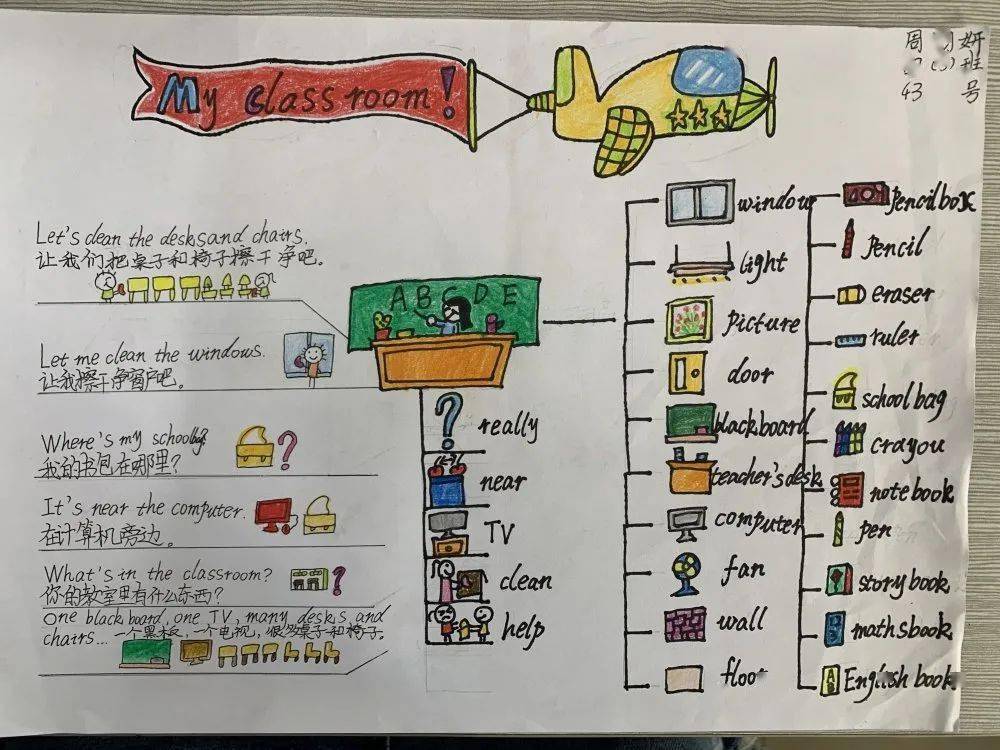 My classroom!
周 妍
班
43 号
Let's clean the desks and chairs.
让我们把桌子和椅子擦干净吧。
Let me clean the windows.
让我擦干净窗户吧。
Where's my schoolbag?
我的书包在哪里?
It's near the computer.
在计算机旁边。
What's in the classroom?
你的教室里有什么东西?
One blackboard, one TV, many desks and
chairs... 一个黑板,一个电视,很多桌子和椅子。
A B C D E
really
near
TV
clean
help
window
light
picture
door
blackboard
teacher's desk
computer
fan
wall
floor
pencil box
pencil
eraser
ruler
schoolbag
crayou
notebook
pen
storybook
mathsbook
English book